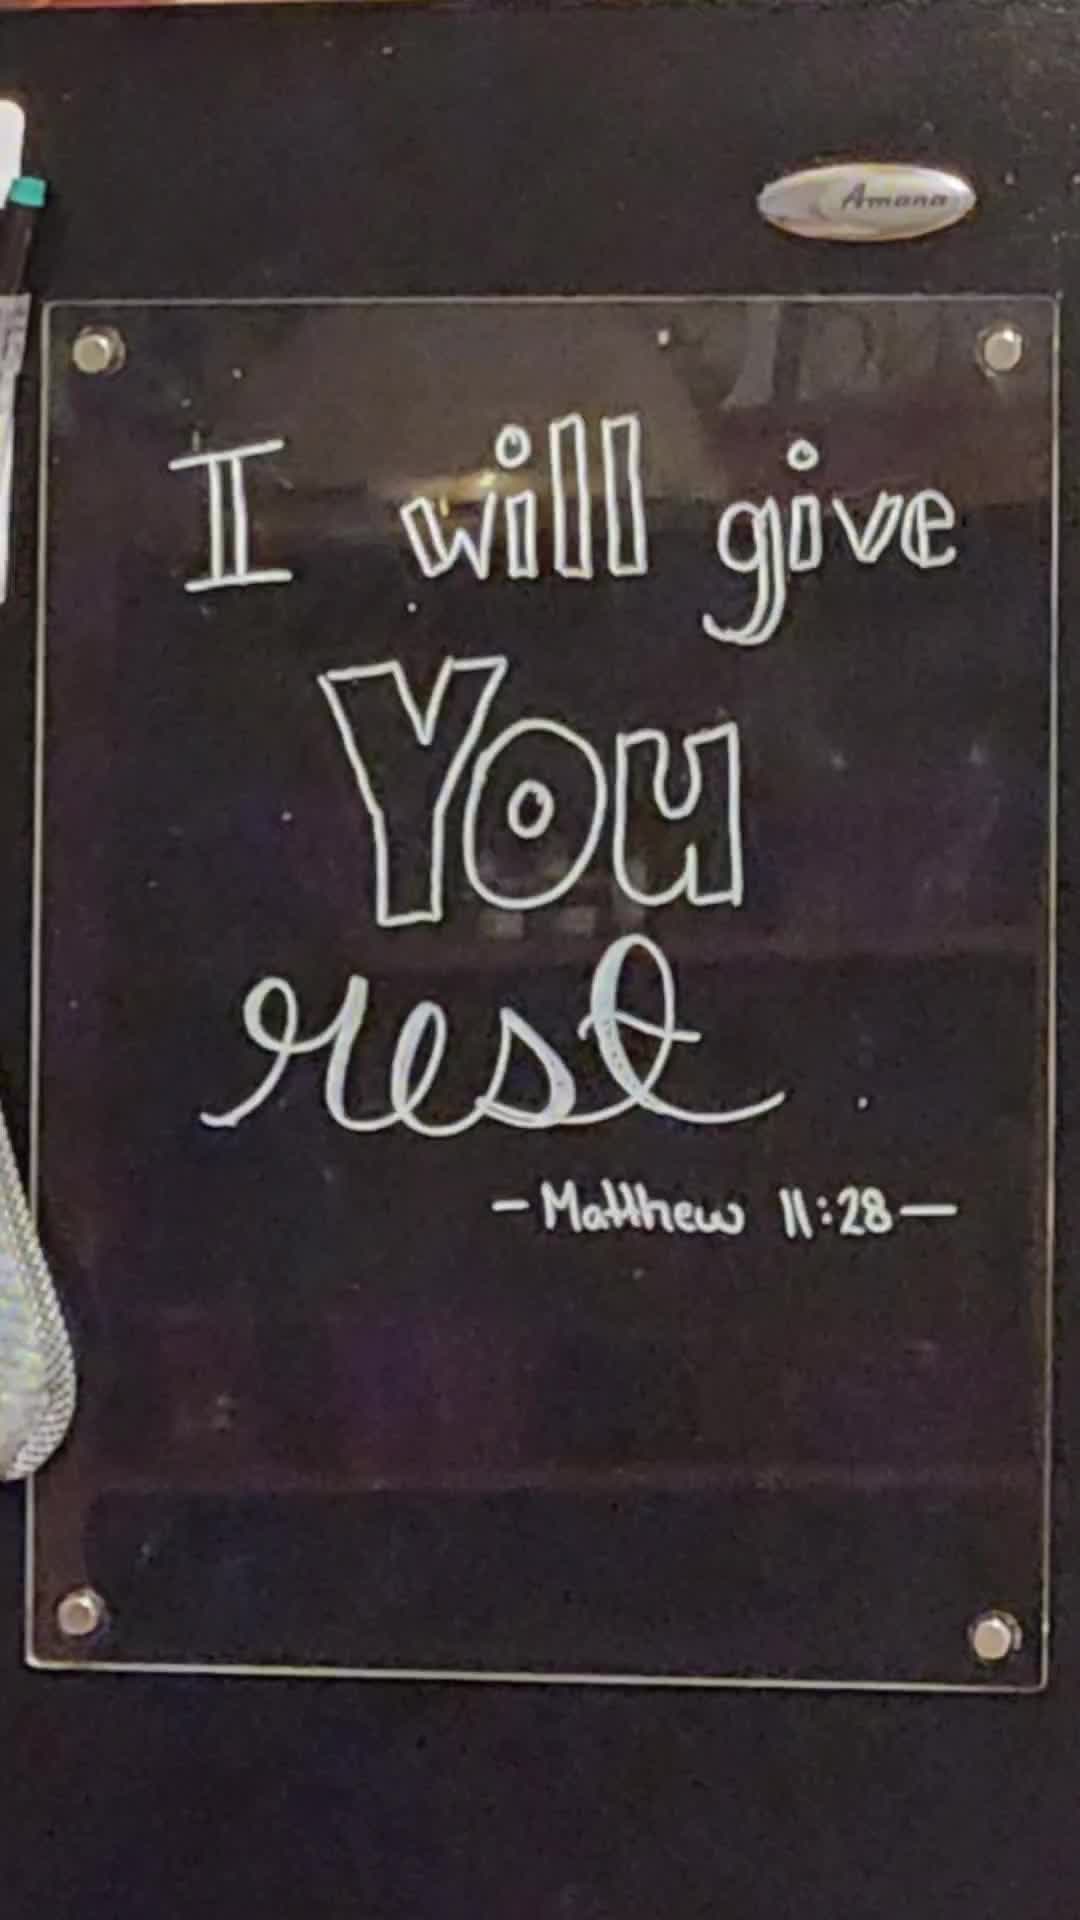 Amana
I will give
You
rest.
-Matthew 11:28-